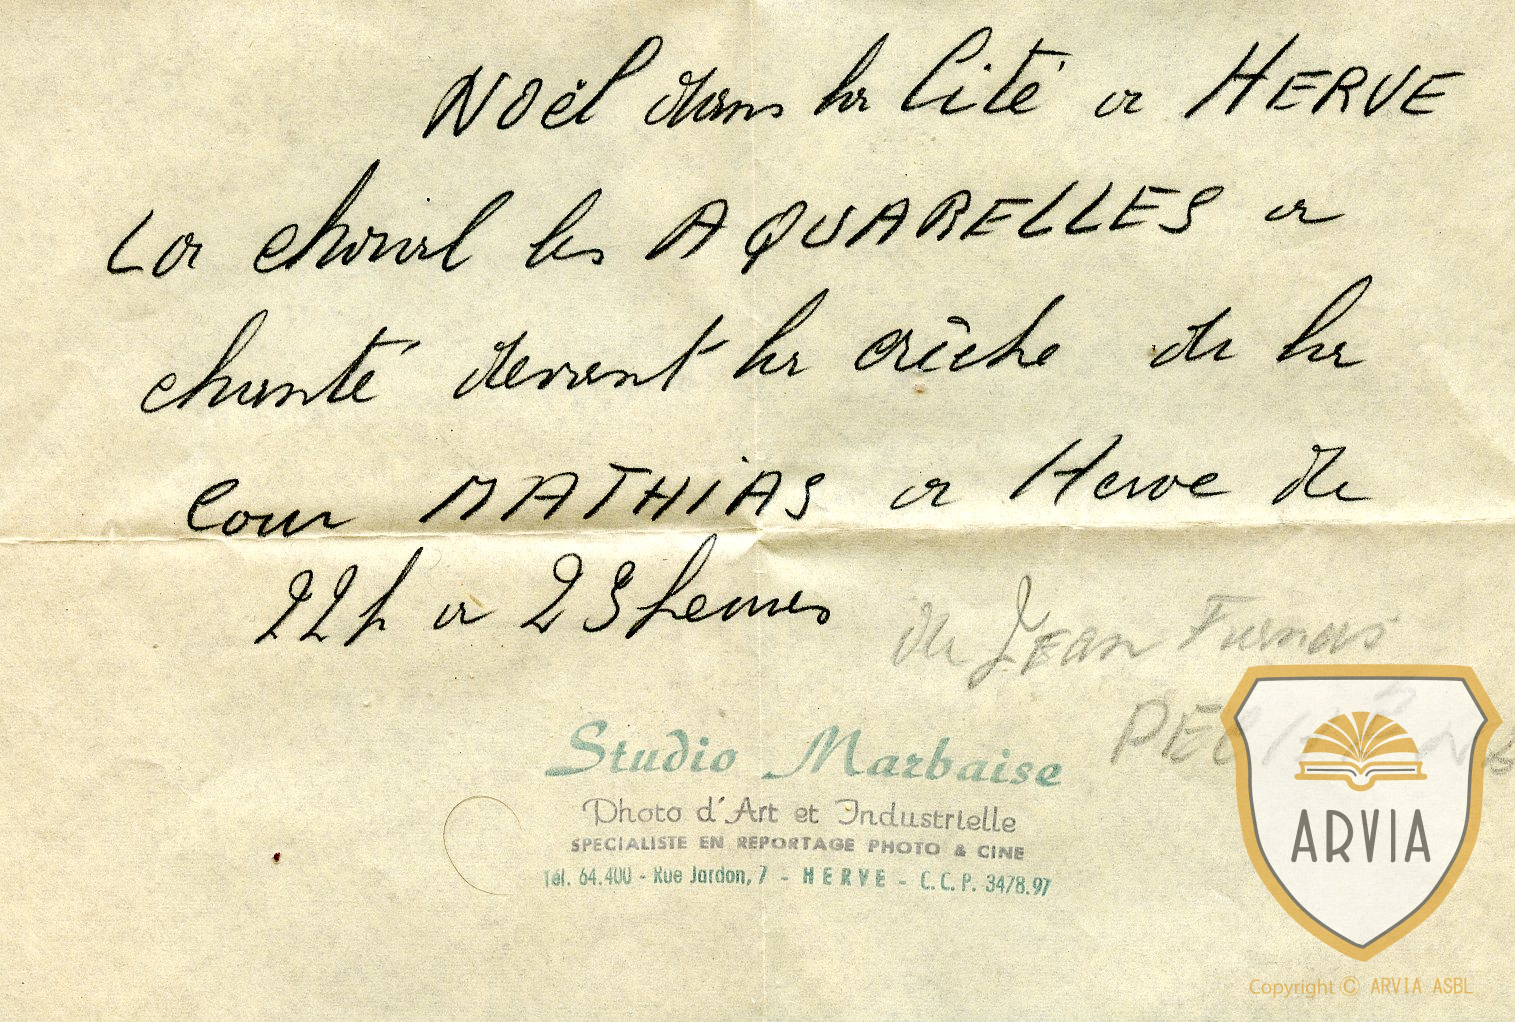 Noël dans la Cité a HERVE
La choral les AQUARELLES a
chanté devant la crèche de la
Cour MATHiAS a Herve de
22h a 23heures
de JEan
Studio Marbaise
Photo d'Art et Industrielle
SPECIALISTE EN REPORTAGE PHOTO & CINE
Tél. 64.400 - Rue Jardon, 7 - HERVE - C.C.P. 3478.97
ARVIA
Copyright © ARVIA ASBL